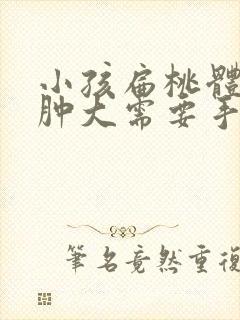 小孩扁桃體
肿大需要手
筆名竟然重復